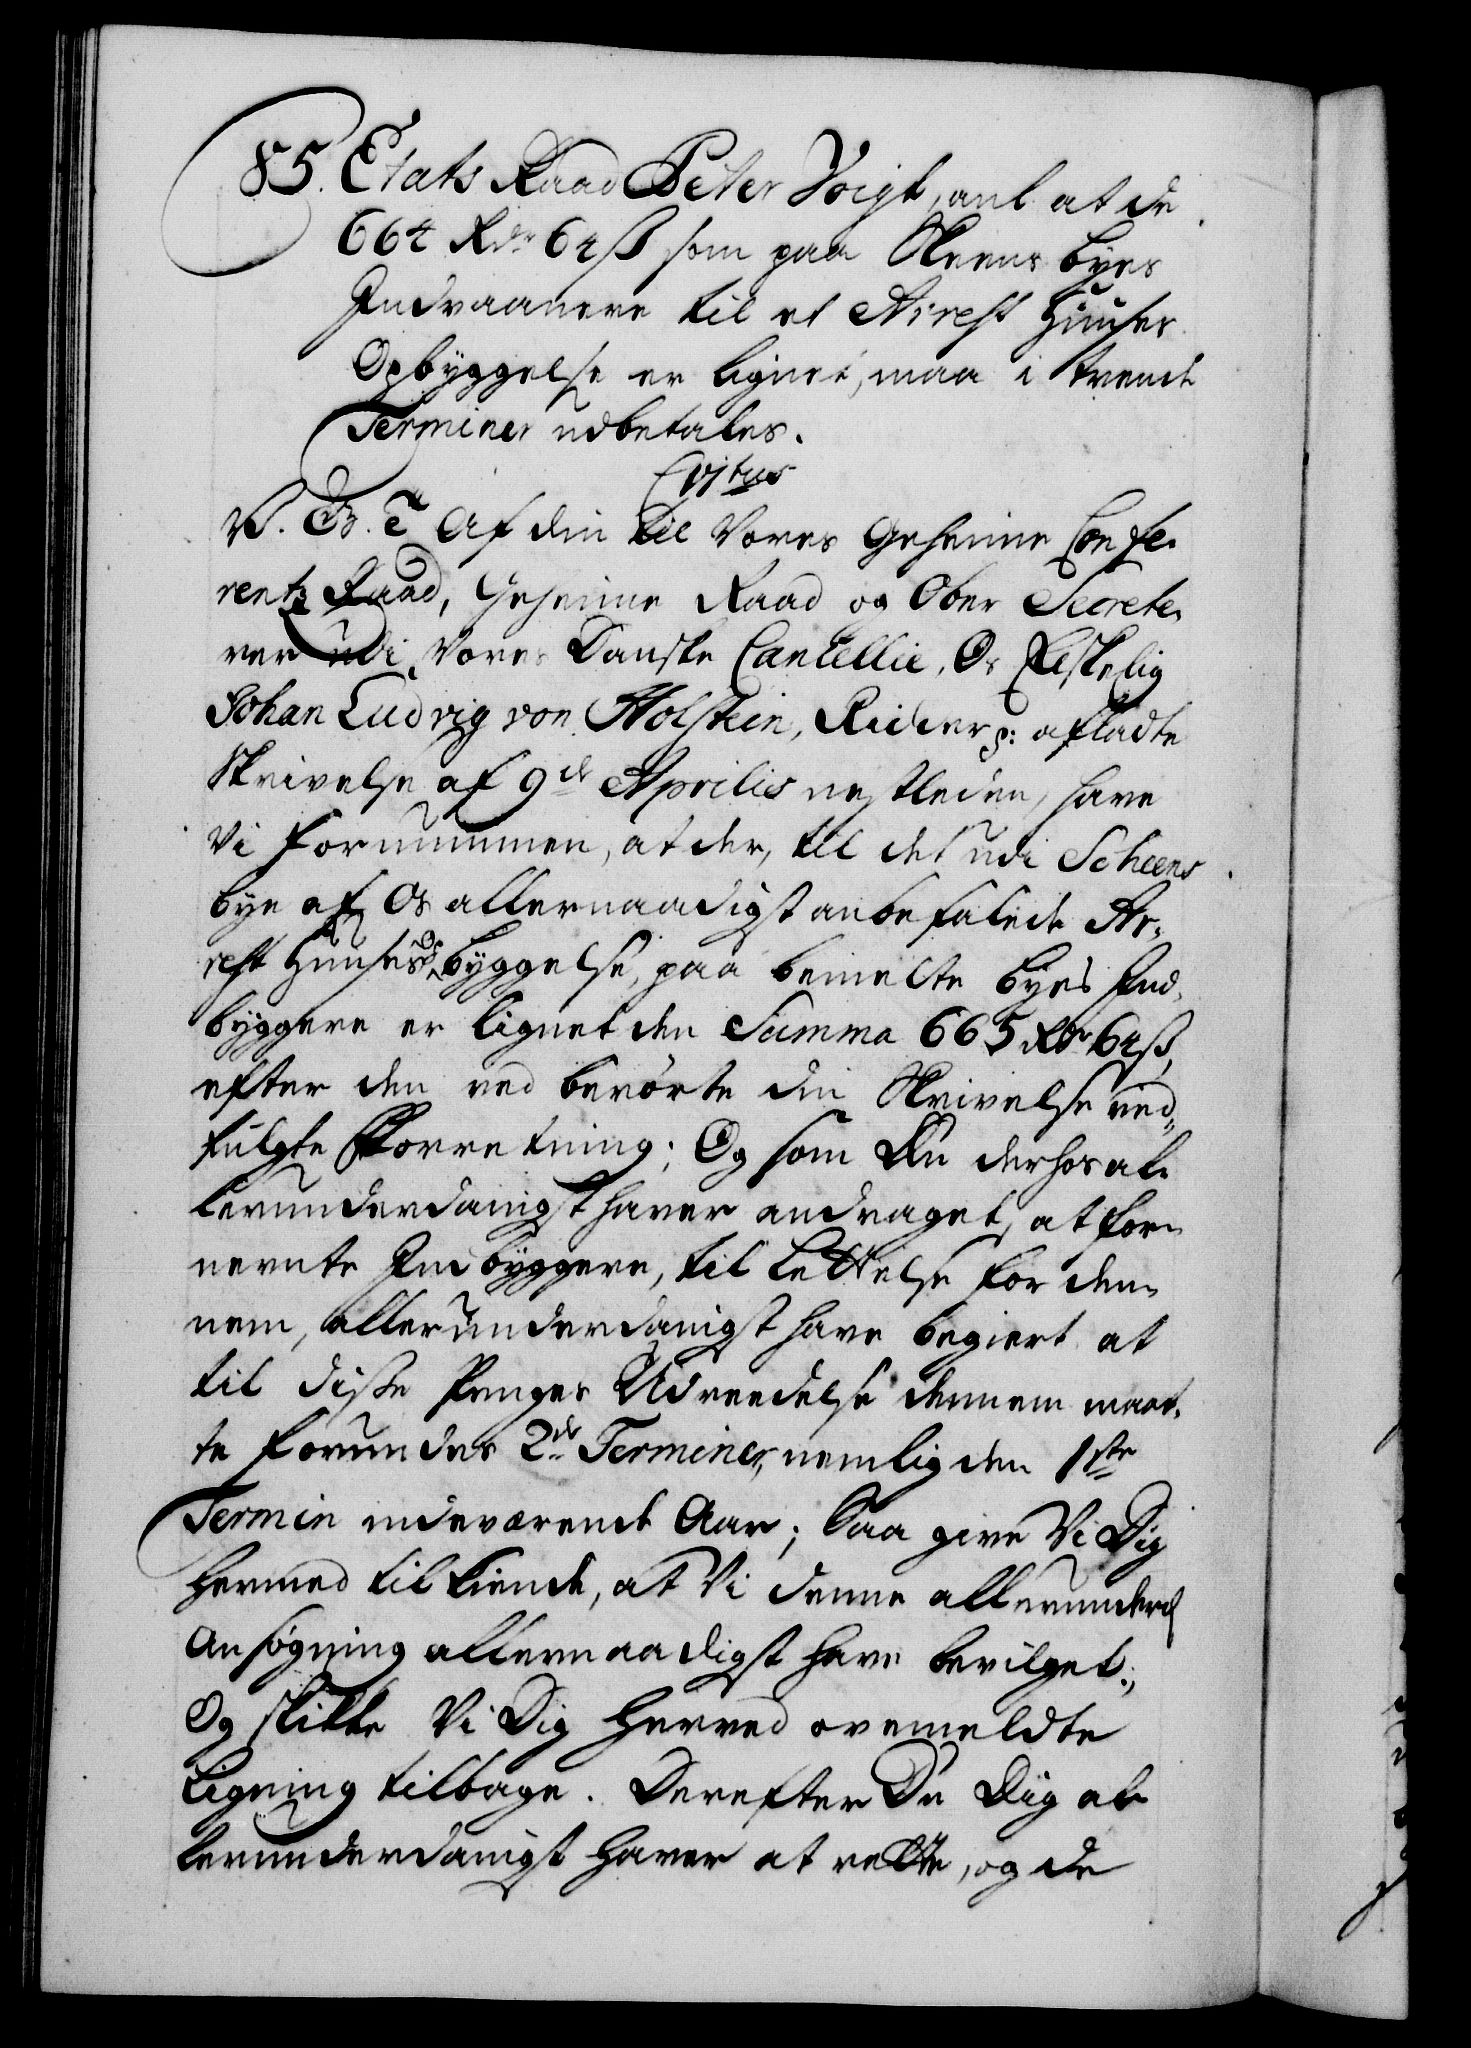 85. Etats Raad Peter Voigt, anl at de
664 Rdr 64 ß som paa Skeens byes
Indvaanere til et Arrest Huuses
Opbyggelse er lignet, maa i tvende
Terminer udbetales.
V. G. T. Af din til Vores Geheime Confe-
rentz Raad, Geheime Raad og Ober Secrete-
rer udi Vores Danske Cancellie, Os Elskelig
Johan Ludvig von Holstein, Ridder p: afladte
Skrivelse af 9de Aprilis nestleden, have
Vi fornummen, at der, til det udi Scheens
bye af Os allernaadigst anbefalede Ar-
rest Huuses Opbyggelse, paa bemelte byes Ind-
byggere er lignet den Summa 665 Rdr 64 ß,
efter den ved berørte din Skrivelse ved-
fulgte Forretning; Og som Du derhos al-
lerunderdanigst haver andraget, at for-
nevnte Indbyggere, til Lettelse for den-
nem, allerunderdanigst have begiert at
til disse Penges Udreedelse dennem maat-
te forundes 2de Terminer, nemlig den 1ste
Termin indeværende Aar; Saa give Vi Dig
hermed tilkiende, at Vi denne allerunderd
Ansøgning allernaadigst have bevilget;
Og skikke Vi Dig herved ovemeldte
Ligning tilbage. Derefter Du Dig al-
lerunderdanigst haver at rette, og de